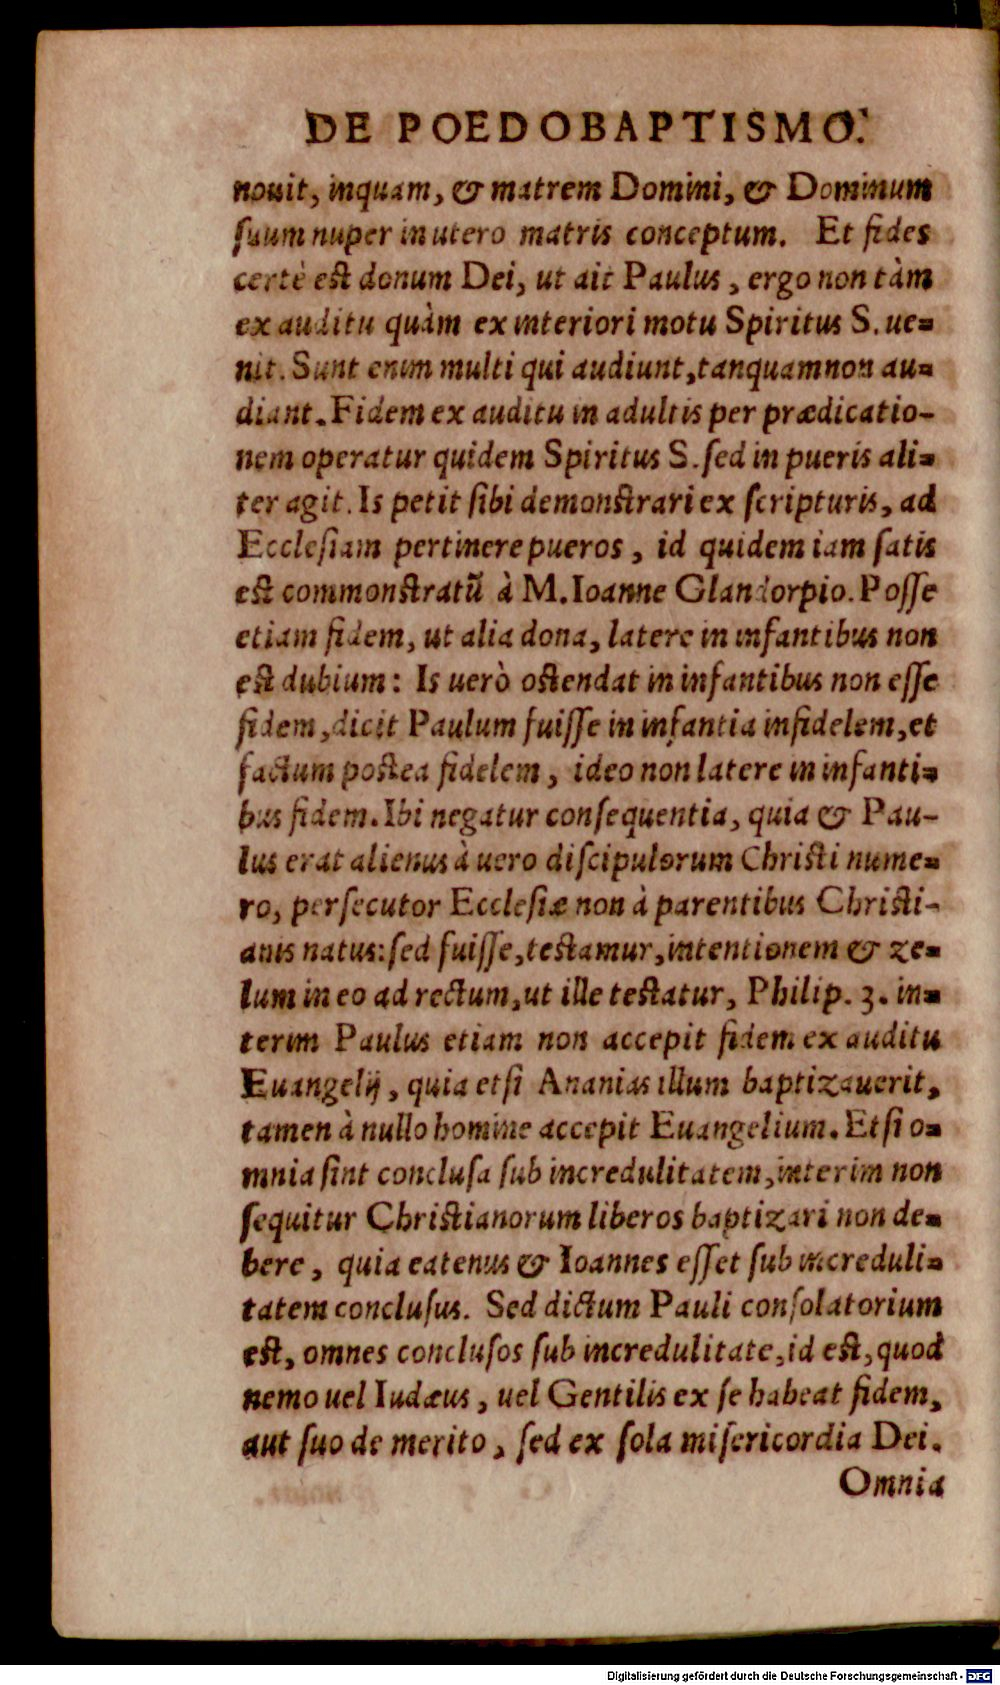 DE POEDOBAPTISMO.
nouit, inquam, & matrem Domini, & Dominum
ſuum nuper in utero matris conceptum. Et fides
certè eſt donum Dei, ut ait Paulus, ergo non tàm
ex auditu quàm ex interiori motu Spiritus S. ue-
nit. Sunt enim multi qui audiunt, tanquam non au-
diant. Fidem ex auditu in adultis per prædicatio-
nem operatur quidem Spiritus S. ſed in pueris ali-
ter agit. Is petit ſibi demonſtrari ex ſcripturis, ad
Eccleſiam pertinere pueros, id quidem iam ſatis
eſt commonſtratũ à M. Ioanne Glandorpio. Poſſe
etiam fidem, ut alia dona, latere in infantibus non
eſt dubium: Is uerò oſtendat in infantibus non eſſe
fidem, dicit Paulum fuiſſe in infantia infidelem, et
factum poſtea fidelem, ideo non latere in infanti-
bus fidem. Ibi negatur conſequentia, quia & Pau-
lus erat alienus à uero diſcipulorum Chriſti nume-
ro, perſecutor Eccleſiæ non à parentibus Chriſti-
anis natus: ſed fuiſſe, teſtamur, intentionem & ze-
lum in eo ad rectum, ut ille teſtatur, Philip. 3. in-
terim Paulus etiam non accepit fidem ex auditu
Euangelij, quia etſi Ananias illum baptizauerit,
tamen à nullo homine accepit Euangelium. Etſi o-
mnia ſint concluſa ſub incredulitatem, interim non
ſequitur Chriſtianorum liberos baptizari non de-
bere, quia eatenus & Ioannes eſſet ſub increduli-
tatem concluſus. Sed dictum Pauli conſolatorium
eſt, omnes concluſos ſub incredulitate, id eſt, quod
nemo uel Iudæus, uel Gentilis ex ſe habeat fidem,
aut ſuo de merito, ſed ex ſola miſericordia Dei.
Omnia
Digitalisierung gefördert durch die Deutsche Forschungsgemeinschaft - DFG